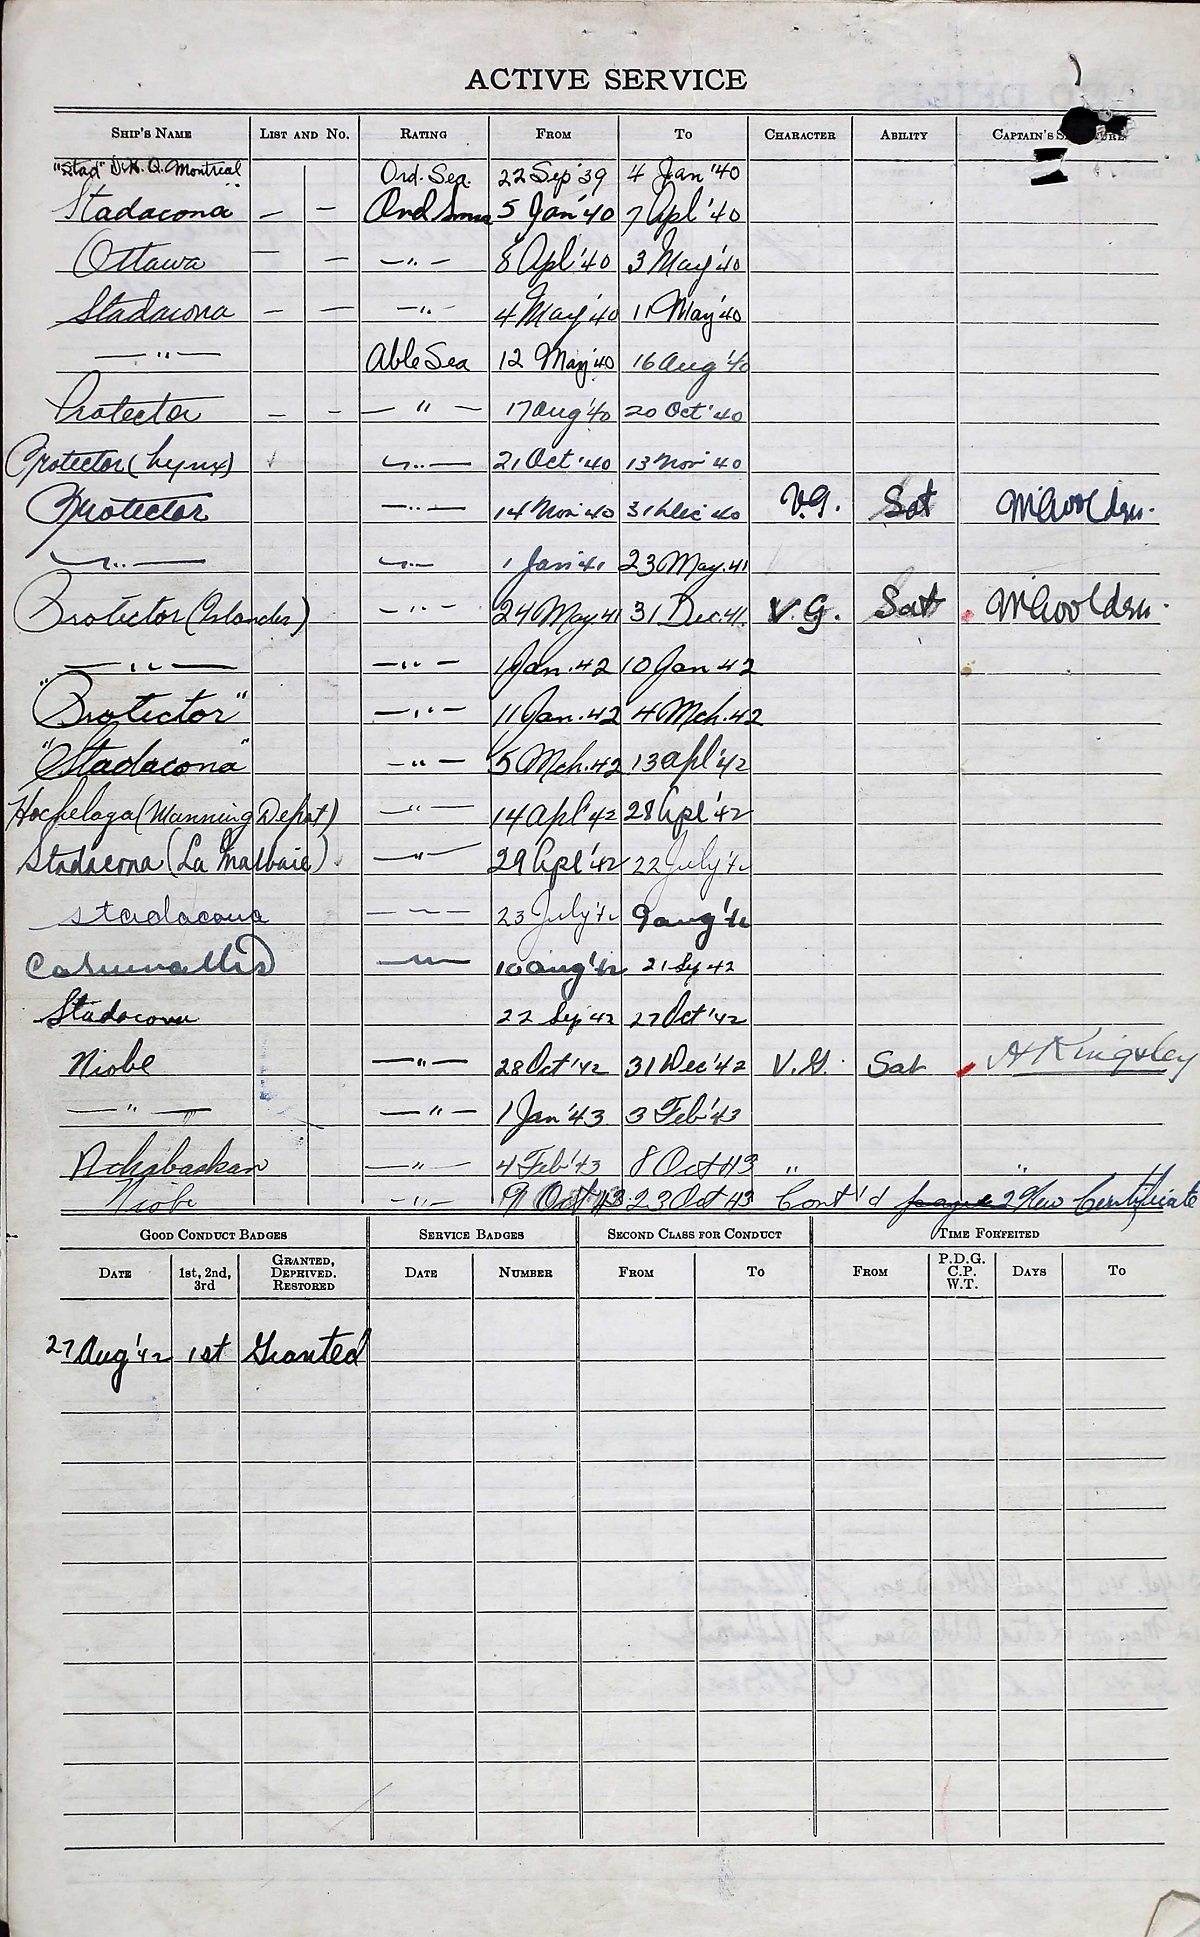 ACTIVE SERVICE
SHIP'S NAME LIST AND NO. RATING FROM TO CHARACTER ABILITY CAPTAIN'S
"Stad" D.H.Q. Montreal Ord. Sea. 22 Sep 39 4 Jan '40
Stadacona — — Ord Smn 5 Jan '40 7 Apl '40
Ottawa — — —"— 8 Apl '40 3 May '40
Stadacona — — —"— 4 May '40 11 May '40
—"— Able Sea 12 May '40 16 Aug '40
Protector — — —"— 17 Aug '40 20 Oct '40
Protector (Lynx) —"— 21 Oct '40 13 Nov 40
Protector —"— 14 Nov 40 31 Dec 40 V.G. Sat
—"— —"— 1 Jan 41 23 May. 41
Protector (Islander) —"— 24 May 41 31 Dec. 41. V.G. Sat
—"— —"— 1 Jan. 42 10 Jan 42
"Protector" —"— 11 Jan. 42 4 Mch. 42
"Stadacona" —"— 5 Mch. 42 13 Apl '42
Hochelaga (Manning Depot) —"— 14 Apl '42 28 Apl '42
Stadacona (La Malbaie) —"— 29 Apl '42 22 July '42
Stadacona —"— 23 July '42 9 Aug '42
Cornwallis —"— 10 Aug '42 21 Sep 42
Stadacona 22 Sep '42 27 Oct '42
Niobe —"— 28 Oct '42 31 Dec '42 V.G. Sat H Kingsley
—"— —"— 1 Jan '43 3 Feb '43
Athabaskan —"— 4 Feb '43 8 Oct 43 " "
Niobe —"— 9 Oct 43 23 Oct 43 Cont'd page 2 New Certificate
GOOD CONDUCT BADGES SERVICE BADGES SECOND CLASS FOR CONDUCT TIME FORFEITED
DATE 1st, 2nd, 3rd GRANTED, DEPRIVED. RESTORED DATE NUMBER FROM TO FROM P.D.G. C.P. W.T. DAYS TO
27 Aug '42 1st Granted